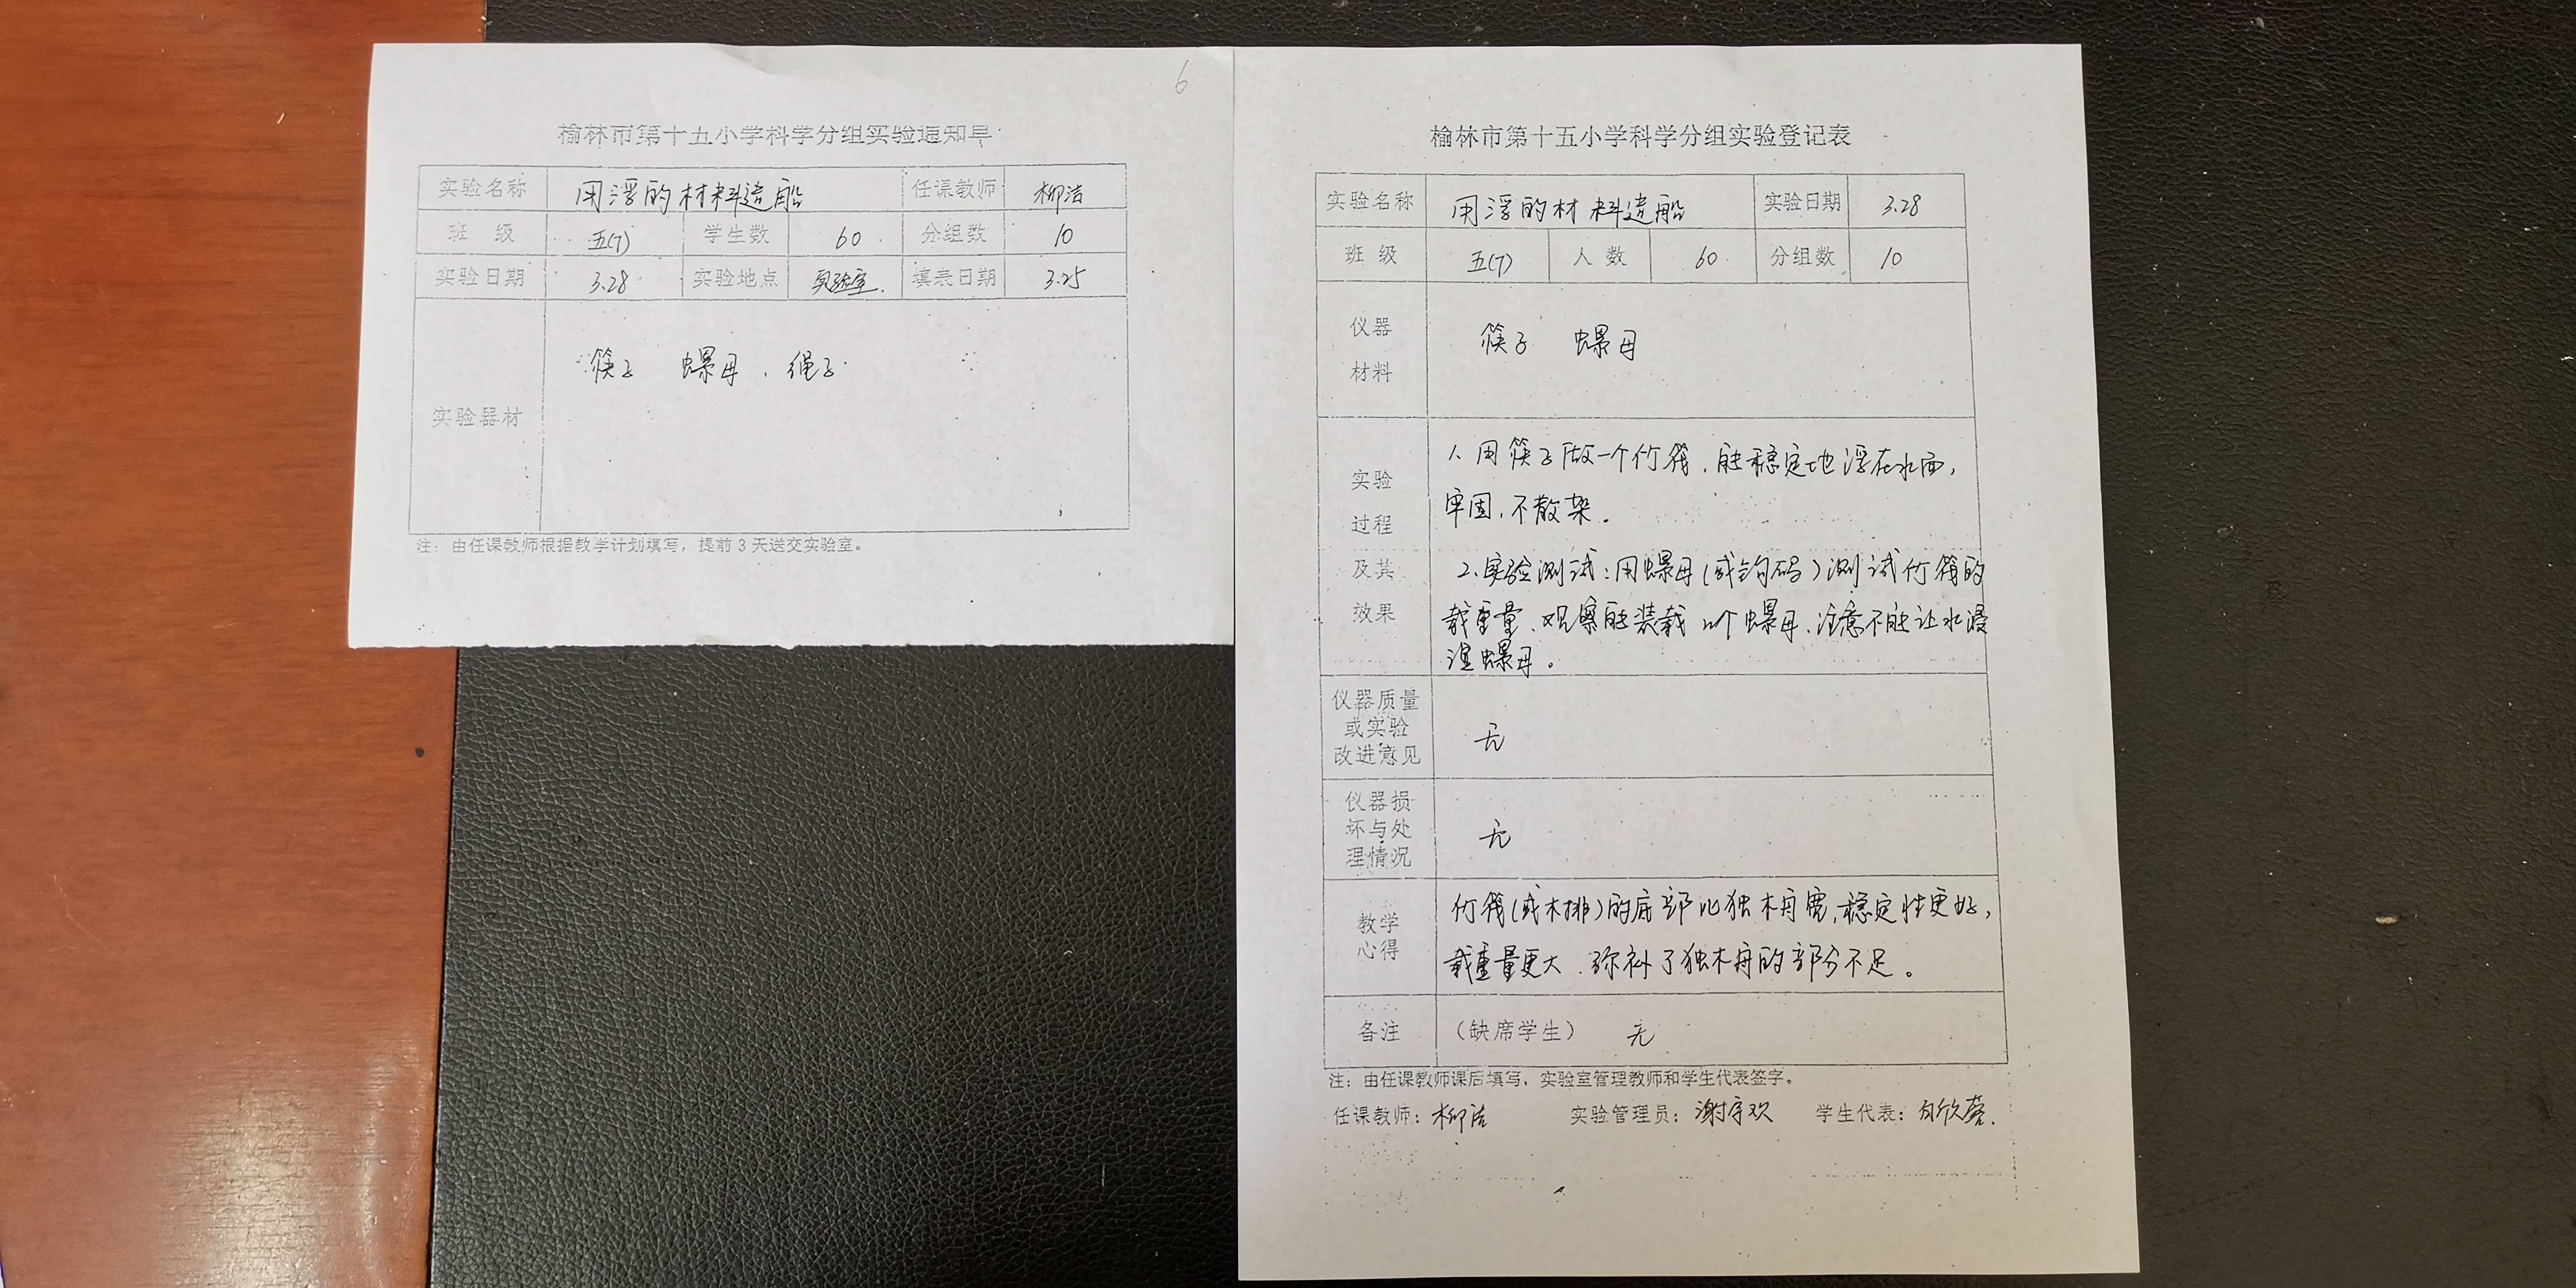 6
榆林市第十五小学科学分组实验通知单
实验名称 用浮的材料造船 任课教师 柳洁
班 级 五(7) 学生数 60 分组数 10
实验日期 3.28 实验地点 实验室. 填表日期 3.25
筷子 螺母 、绳子
实验器材
注：由任课教师根据教学计划填写，提前 3 天送交实验室。
榆林市第十五小学科学分组实验登记表
实验名称 用浮的材料造船 实验日期 3.28
班 级 五(7) 人 数 60 分组数 10
仪器
材料
筷子 螺母
实验
过程
及其
效果
1、用筷子做一个竹筏，能稳定地浮在水面，
牢固，不散架．
2、实验测试：用螺母(或钩码)测试竹筏的
载重量、观察能装载几个螺母、注意不能让水浸
湿螺母。
仪器质量
或实验
改进意见
无
仪器损
坏与处
理情况
无
教学
心得
竹筏(或木排)的底部比独木舟宽，稳定性更好，
载重量更大、弥补了独木舟的部分不足。
备注 （缺席学生） 无
注：由任课教师课后填写，实验室管理教师和学生代表签字。
任课教师：柳洁 实验管理员：谢宇欢 学生代表：白欣蓉.